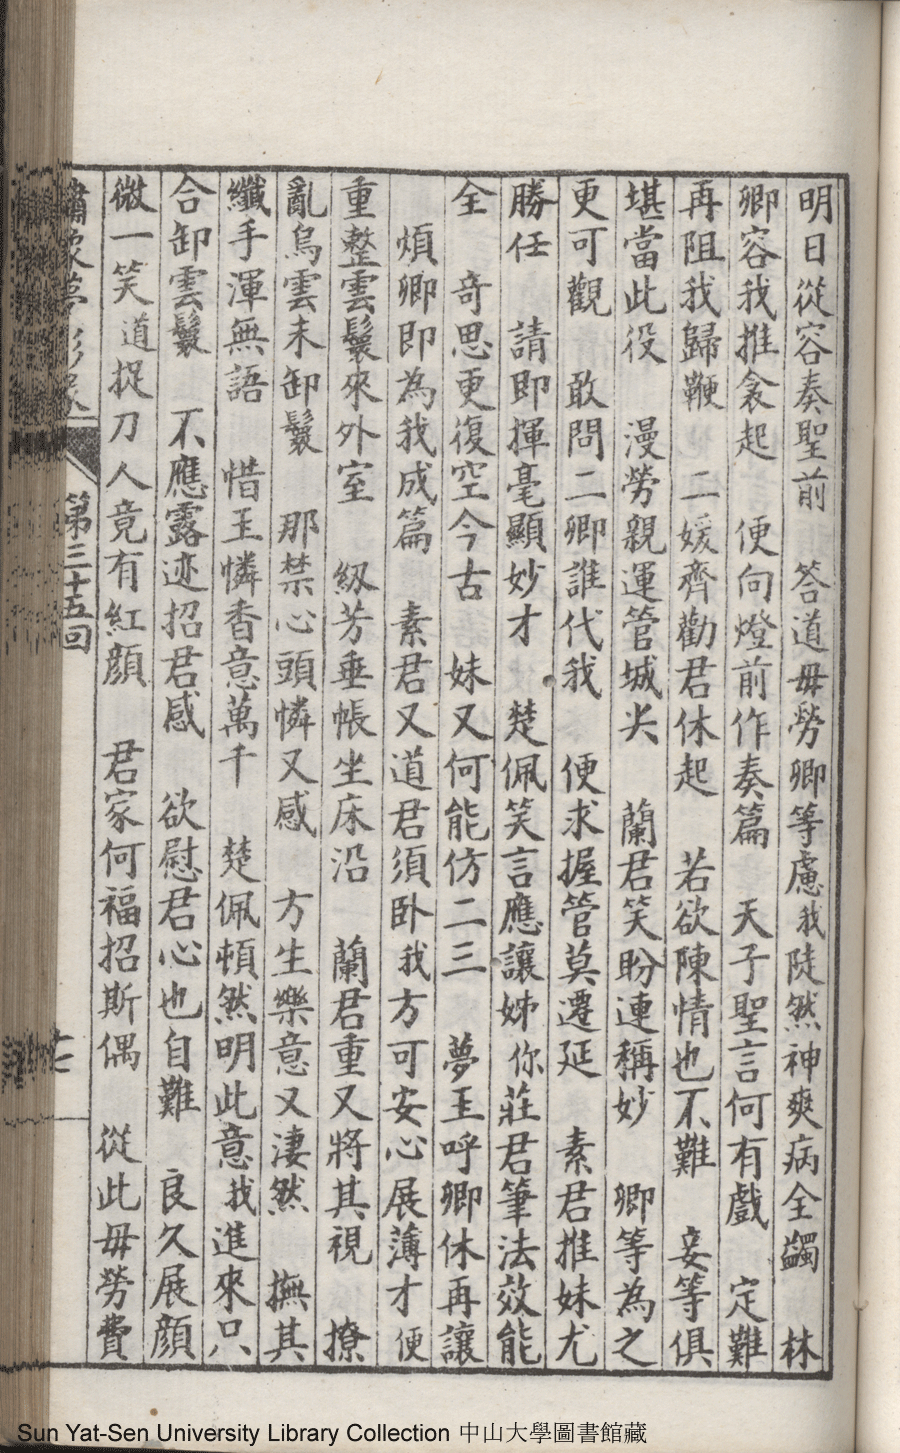 明日從容奏聖前　答道毋勞卿等慮我陡然神爽病全蠲　林
卿容我推衾起　便向燈前作奏篇　天子聖言何有戲　定難
再阻我歸鞭　二媛齊勸君休起　若欲陳情也不難　妾等俱
堪當此役　漫勞親運管城尖　蘭君笑盼連稱妙　卿等為之
更可觀　敢問二卿誰代我　便求握管莫遷延　素君推妹尤
勝任　請即揮毫顯妙才　楚佩笑言應讓姊你莊君筆法效能
全　奇思更復空今古　妹又何能仿二三　夢玉呼卿休再讓
煩卿即為我成篇　素君又道君須臥我方可安心展薄才便
重整雲鬟來外室　級芳垂帳坐床沿　蘭君重又將其視　撩
亂烏雲未卸鬟　那禁心頭憐又感　方生樂意又淒然　撫其
纖手渾無語　惜玉憐香意萬千　楚佩頓然明此意我進來只
合卸雲鬟　不應露迹招君感　欲慰君心也自難　良久展顏
微一笑道捉刀人竟有紅顏　君家何福招斯偶　從此毋勞費
夢影緣　第三十五回
Sun Yat-Sen University Library Collection 中山大學圖書館藏